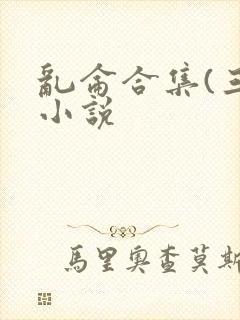 亂侖合集(三
小說
馬里奧查莫斯